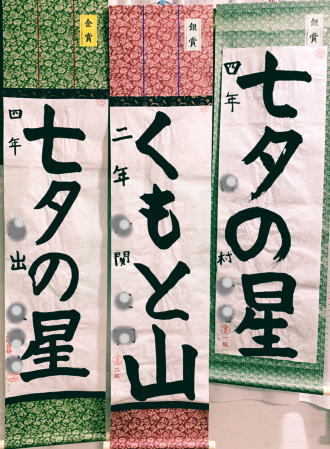 銀賞
七夕の星
四年
村
一級
銀賞
くもと山
二年
関
二級
金賞
七夕の星
四年
出